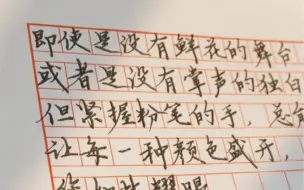 即使是没有鲜花的舞台
或者是没有掌声的独白
但紧握粉笔的手，总能
让每一种颜色盛开，